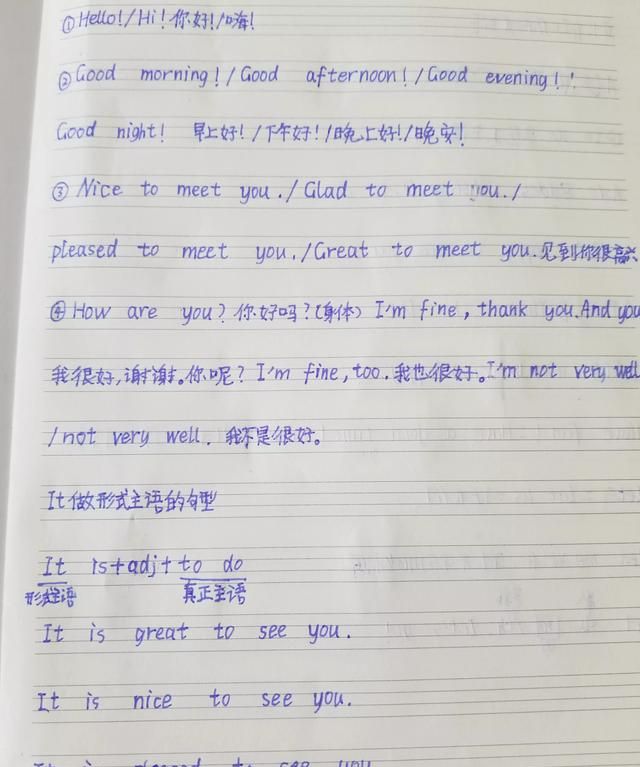 ①Hello!/Hi!你好!/嗨!
②Good morning!/Good afternoon!/Good evening!
Good night! 早上好!/下午好!/晚上好!/晚安!
③Nice to meet you./Glad to meet you./
pleased to meet you./Great to meet you.见到你很高兴
④How are you?你好吗?(身体) I'm fine, thank you.And you
我很好,谢谢。你呢? I'm fine, too.我也很好。I'm not very well
/not very well. 我不是很好。
It做形式主语的句型
It is+adj+to do
形式主语 真正主语
It is great to see you.
It is nice to see you.